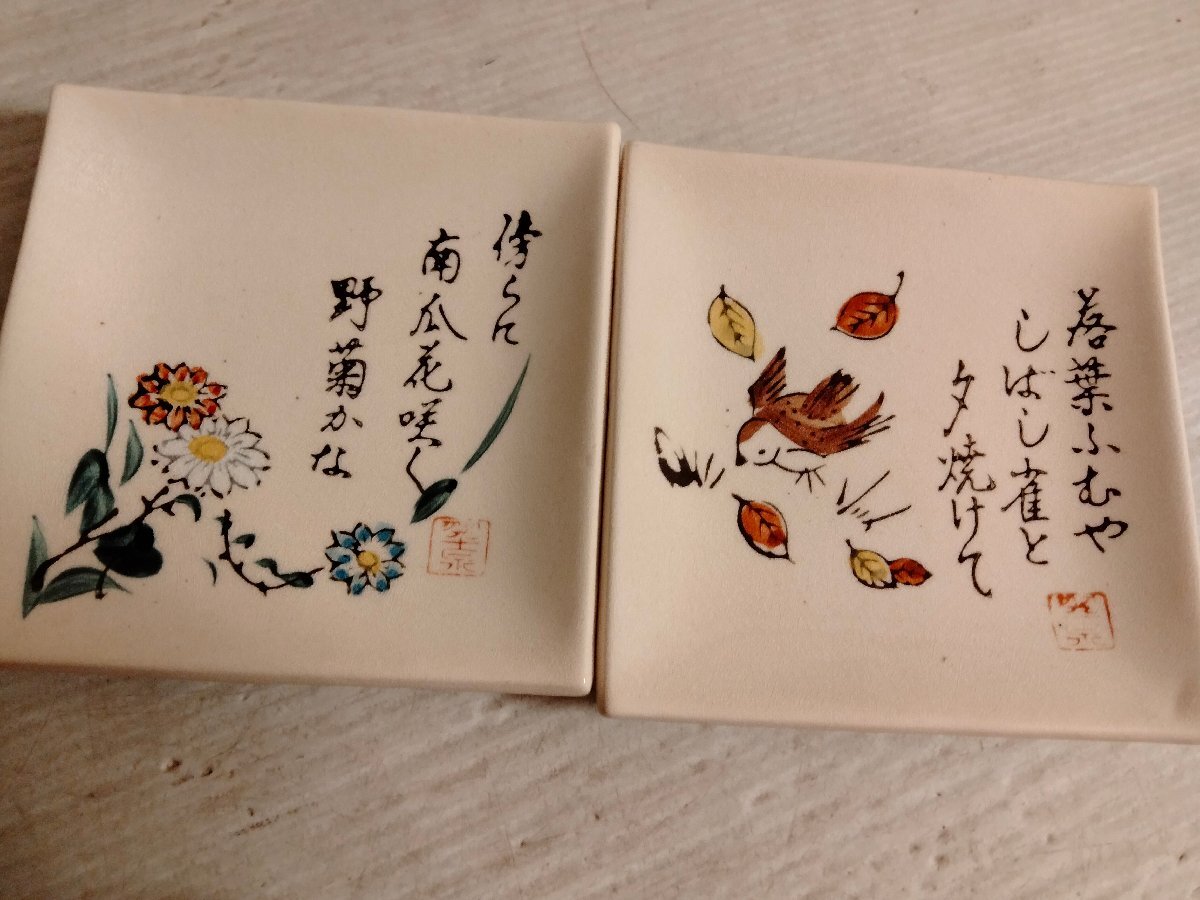 傍らに
南瓜花咲く
野菊かな
落葉ふむや
しばし雀と
夕焼けて